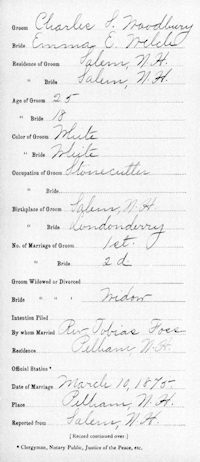 Groom Charles S. Woodbury
Bride Emma E. Welch
Residence of Groom Salem, N.H.
" Bride Salem, N.H.
Age of Groom 25
" Bride 18
Color of Groom White
" Bride White
Occupation of Groom Stonecutter
" Bride
Birthplace of Groom Salem, N.H.
" Bride Londonderry
No. of Marriage of Groom 1st.
" Bride 2d
Groom Widowed or Divorced
Bride " " " Widow
Intention Filed
By whom Married Rev. Tobias Foss
Residence Pelham, N.H.
Official Station *
Date of Marriage March 10, 1875.
Place Pelham, N.H.
Reported from Salem, N.H.
[Record continued over]
* Clergyman, Notary Public, Justice of the Peace, etc.